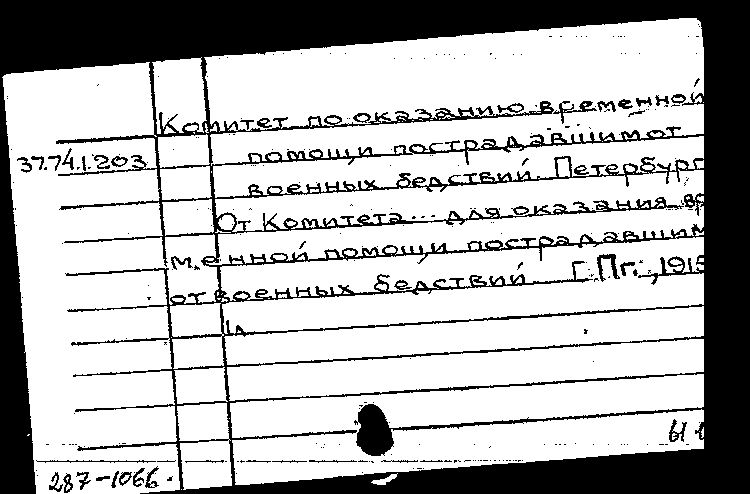 Комитет по оказанию временной
37.74.1.203 помощи пострадавшим от
военных бедствий. Петербург
От Комитета... для оказания вре
менной помощи пострадавшим
от военных бедствий [Пг., 1915
1л
287-1066.